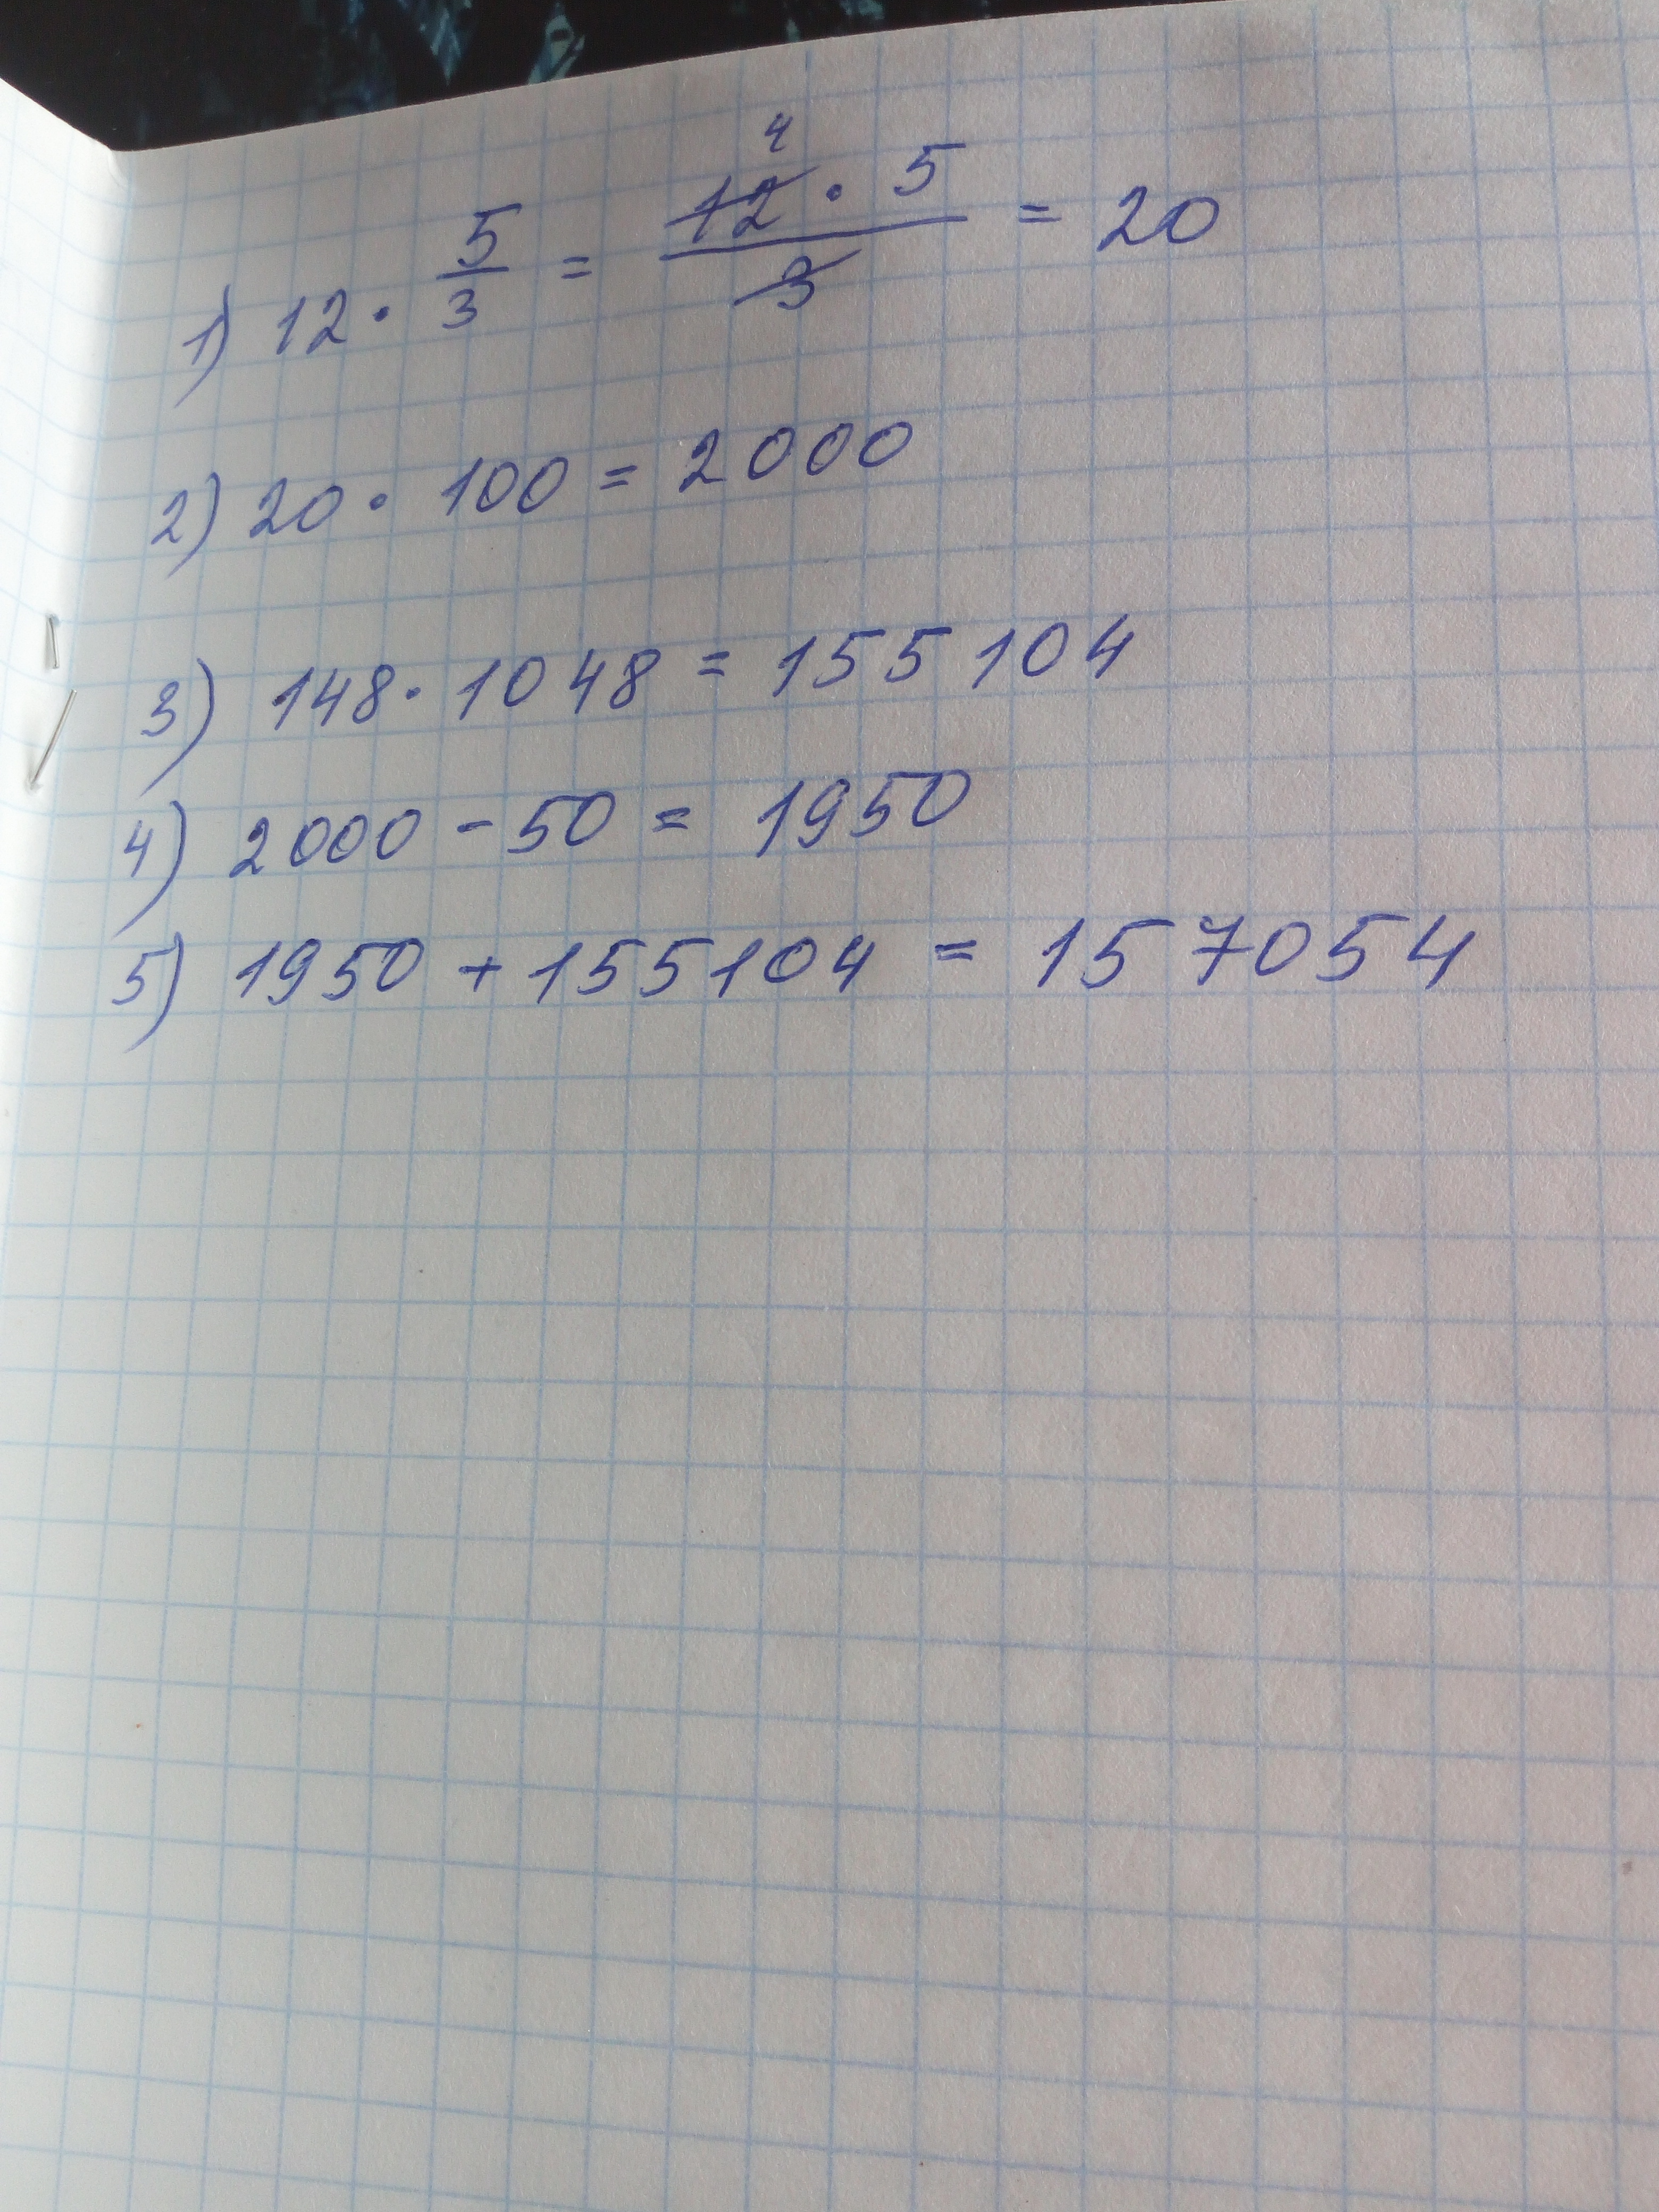 1) 12 · 5/3 = 12 · 5 / 3 = 20
4
2) 20 · 100 = 2000
3) 148 · 1048 = 155104
4) 2000 - 50 = 1950
5) 1950 + 155104 = 157054